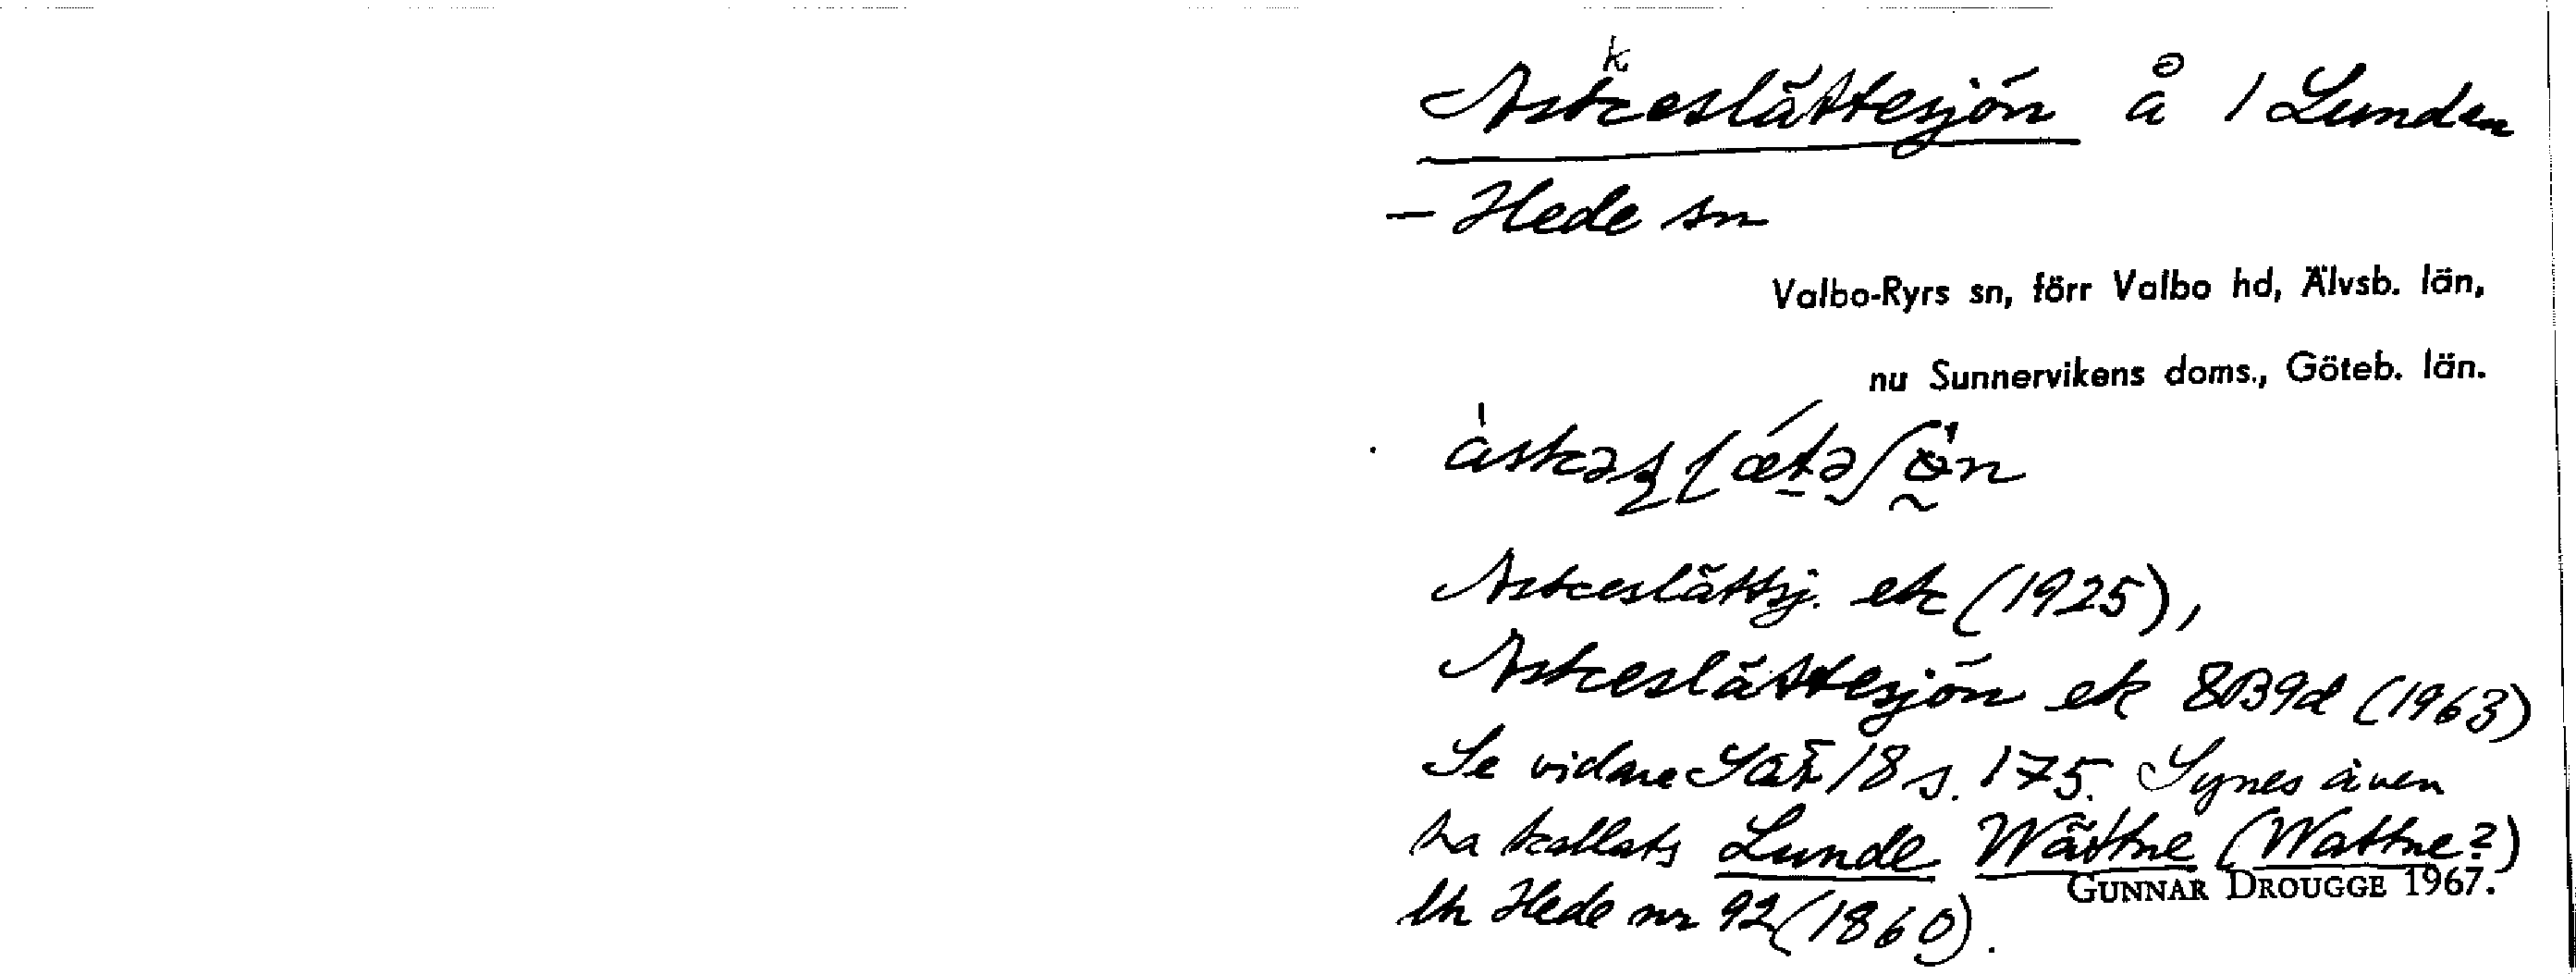 Askeslättesjön å 1 Lunden
k
– Hede sn
Valbo-Ryrs sn, förr Valbo hd, Älvsb. län,
nu Sunnervikens doms., Göteb. län.
Askeslättsj. ek (1925),
Askeslättesjön ek 8B9d (1963)
Se vidare SOÄ 18 s. 175. Synes även
ha kallats Lunde Wättne (Wattne?)
lh Hede nr 92 (1860).
GUNNAR DROUGGE 1967.